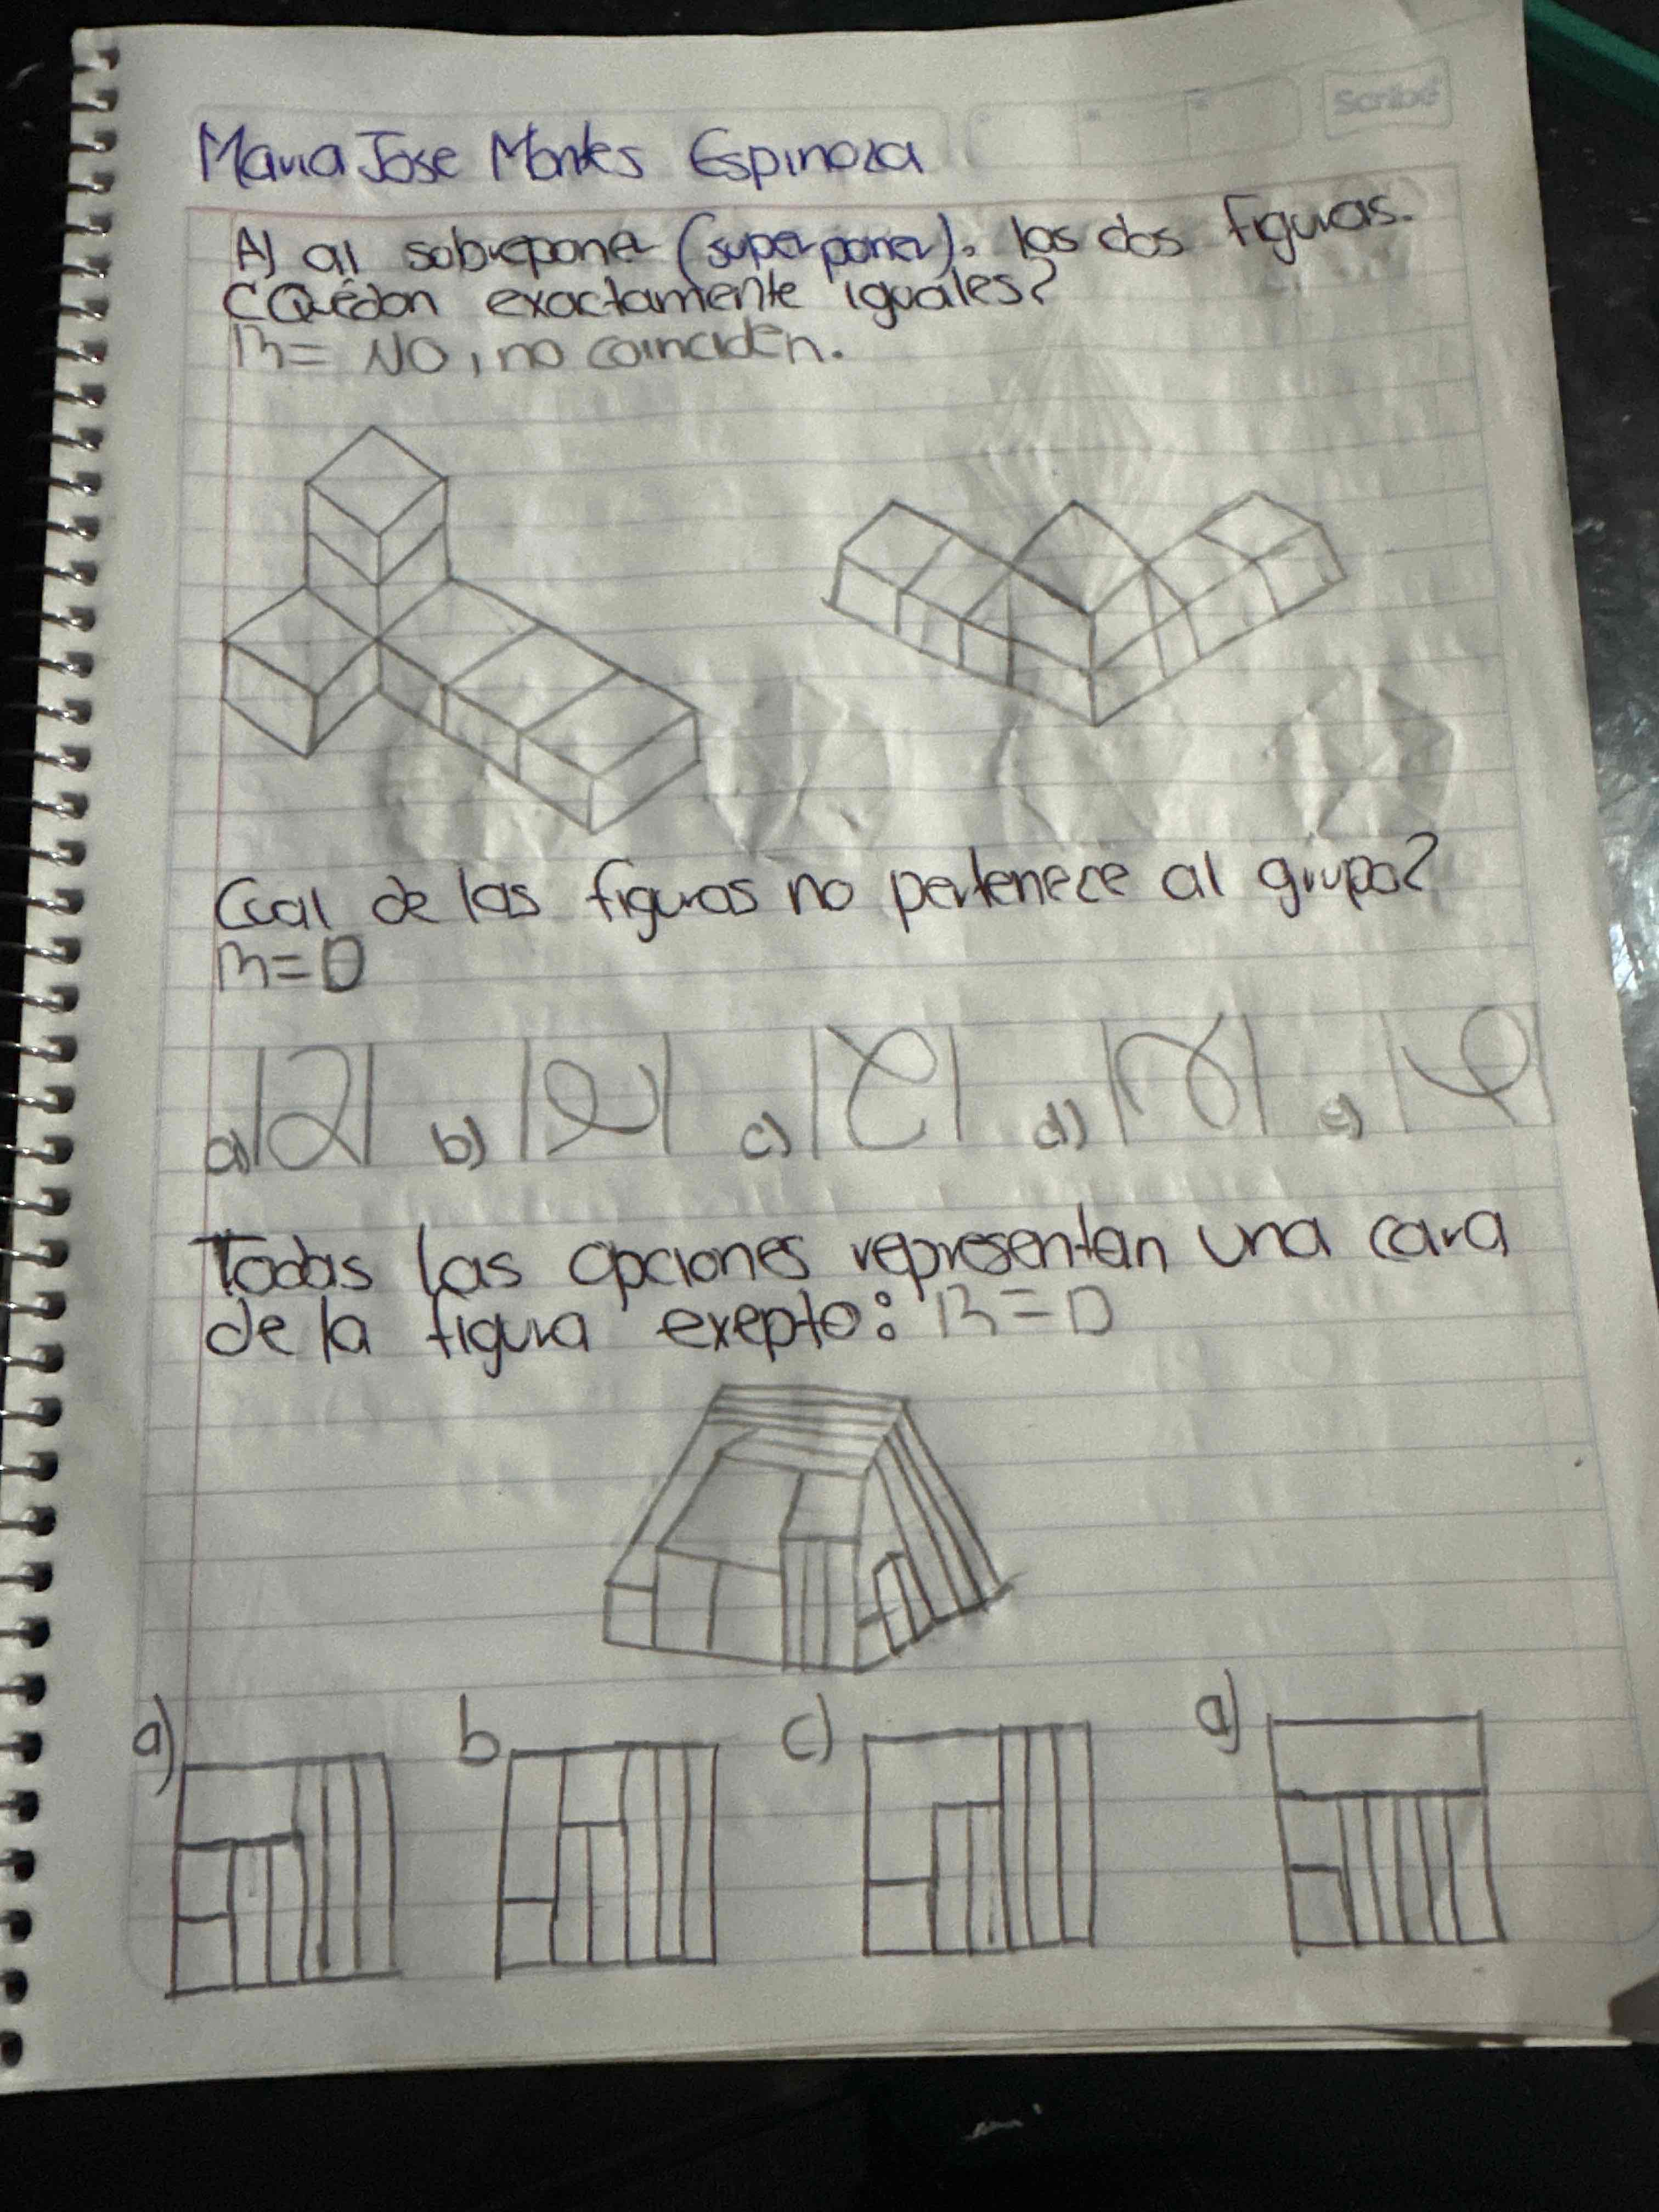 Scribe
Maria Jose Montes Espinoza
A) al sobreponer (superponer). las dos figuras.
¿Quedan exactamente iguales?
R= NO, no coinciden.
Cual de las figuras no pertenece al grupo?
R=D
a) b) c) d) e)
Todas las opciones representan una cara
de la figura exepto: R=D
a) b c) d)